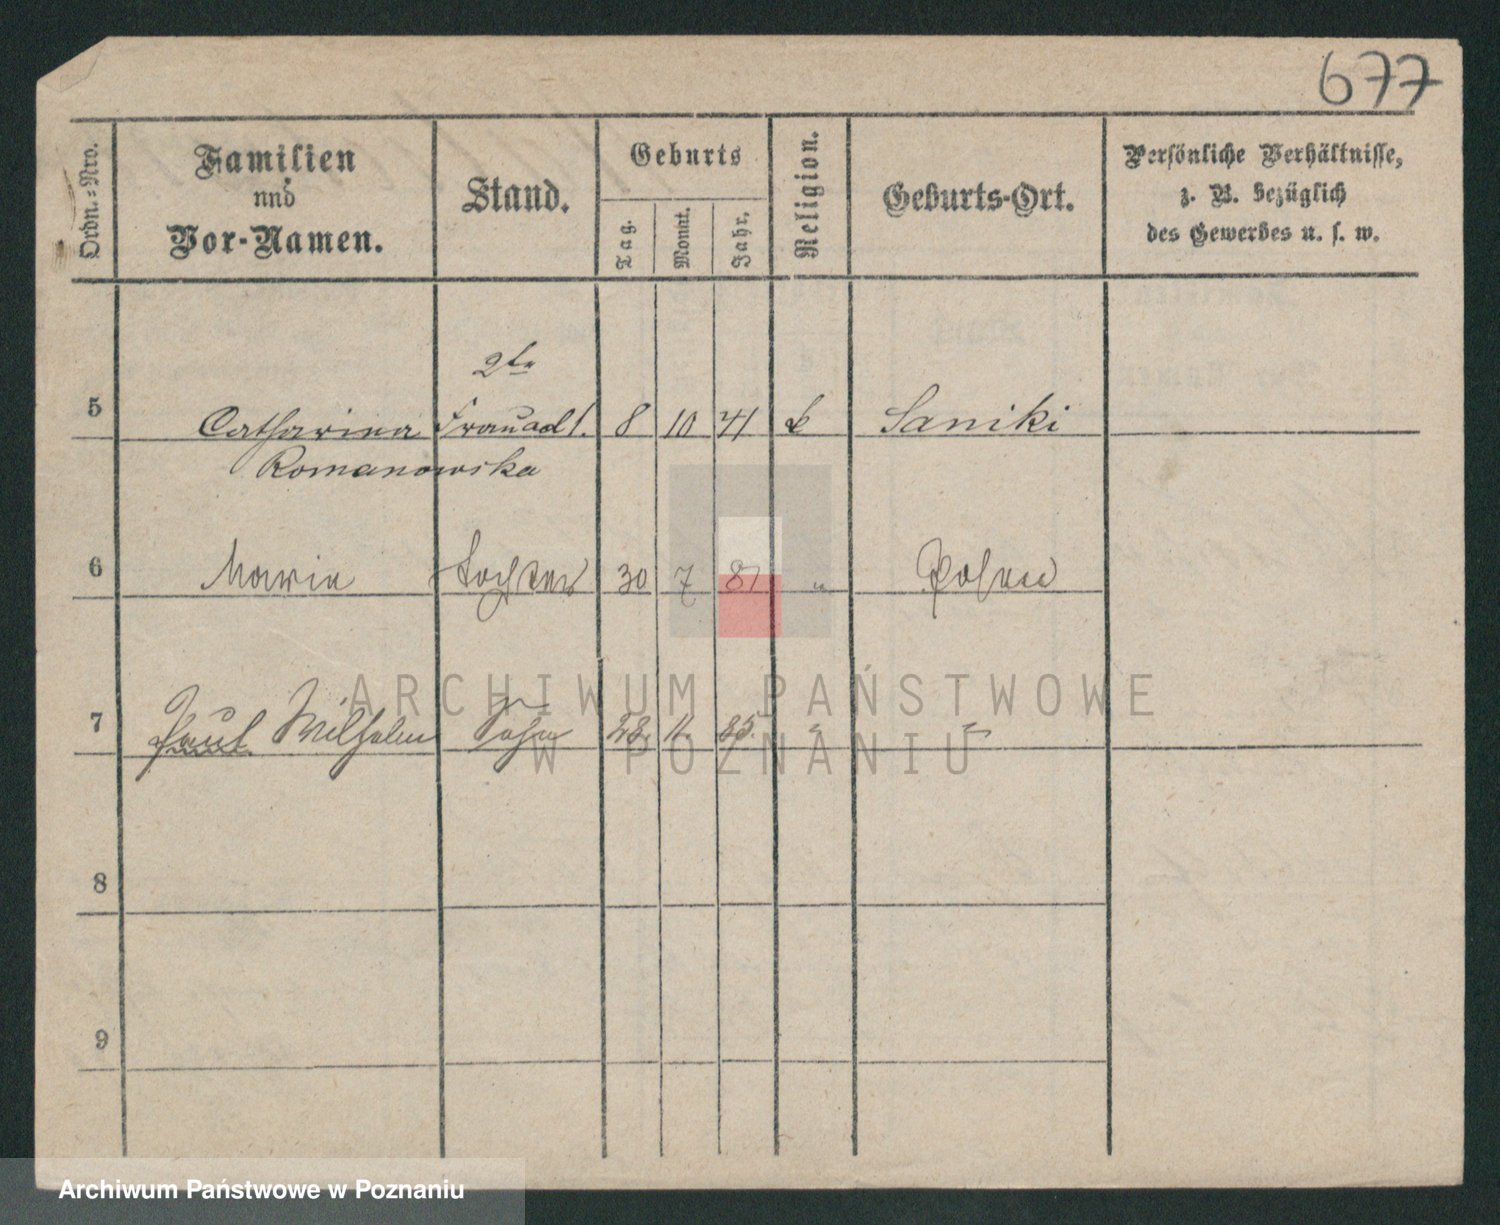 677
Ordn.-Nro.
Familien
und
Vor-Namen.
Stand.
Geburts
Tag.
Monat.
Jahr.
Religion.
Geburts-Ort.
Persönliche Verhältnisse,
z. B. bezüglich
des Gewerbes u. s. w.
2te
5 Catharina Frau ad 1. 8 10 41 k Saniki
Romanowska
6 Maria Tochter 30 7 81 " Posen
7 Paul Wilhelm Sohn 28. 11. 85. " "
8
9
ARCHIWUM PAŃSTWOWE
W POZNANIU
Archiwum Państwowe w Poznaniu